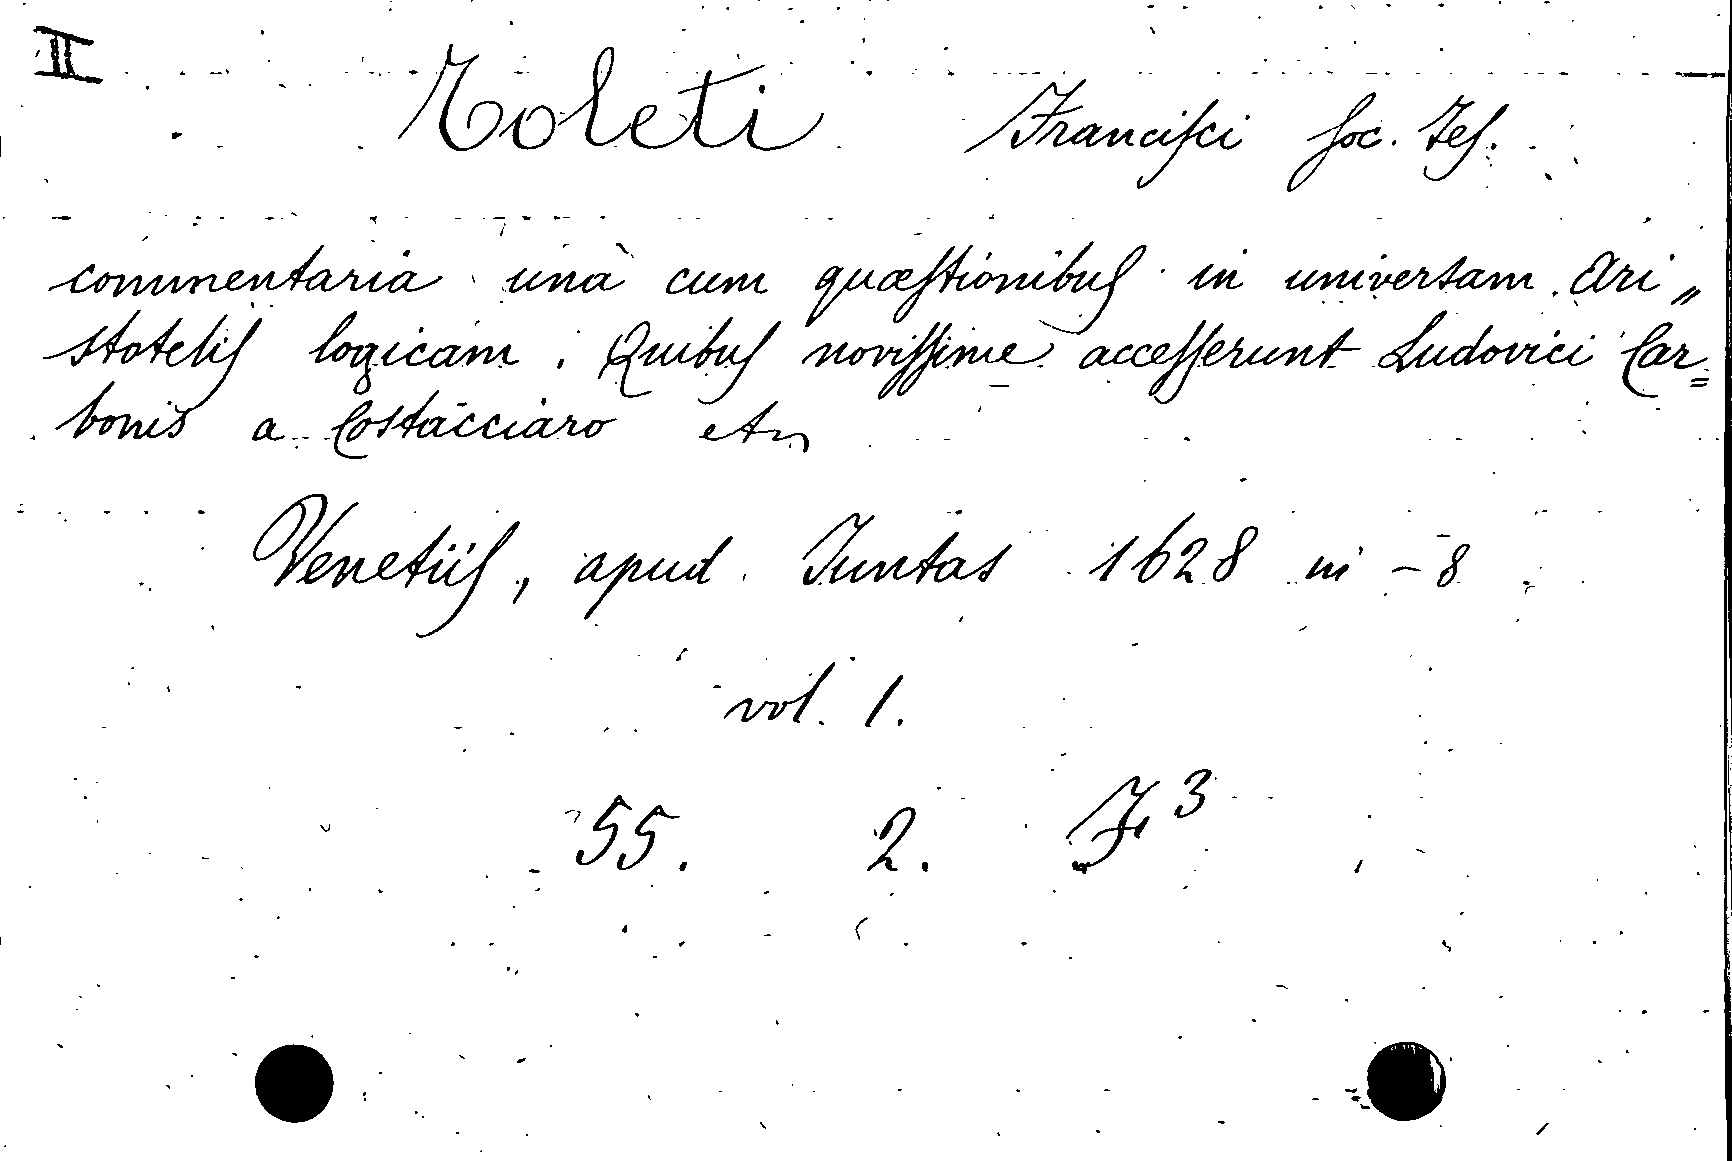 II
Toleti Franciſci Soc. Ieſ.
commentaria unà cum quæſtionibuſ in universam Ari„
stoteliſ logicam. Quibuſ noviſſime acceſſerunt Ludovici Car=
bonis a Costacciaro etc
Venetiiſ, apud Iuntas 1628 in -8
vol. 1.
55. 2. F³